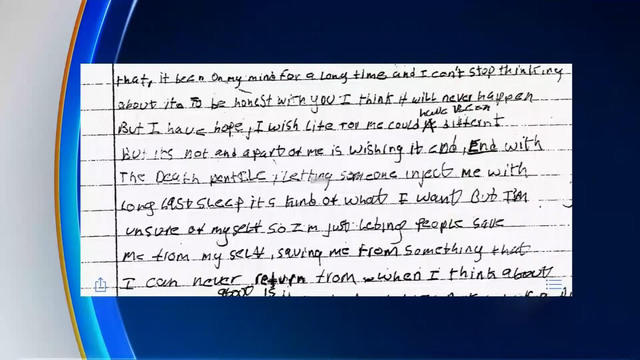 that, it been on my mind for a long time and I can't stop thinking
about it. To be honest with you I think it will never happen
But I have hope, I wish life for me could
have been
differnt
But its not and apart of me is wishing it end, End with
The Death , letting someone inject me with
long last sleep its kind of what I want But I'm
unsure of myself so I'm just leting people save
me from my self, saving me from something that
I can never return from when I think about